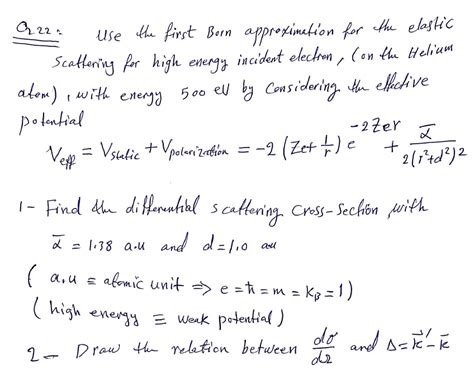 Q.22: Use the first Born approximation for the elastic
Scattering for high energy incident electron, (on the Helium
atom), with energy 500 eV by Considering the effective
potential
V_eff = V_static + V_polarization = -2 (Ze + 1/r) e^{-2Zer} + ᾱ / 2(r²+d²)²
1- Find the differential scattering Cross-Section with
ᾱ = 1.38 a.u and d = 1.0 au
( a.u ≡ atomic unit ⇒ e = ħ = m = K_B = 1)
( high energy ≡ weak potential )
2- Draw the relation between dσ/dΩ and Δ = k⃗' - k⃗